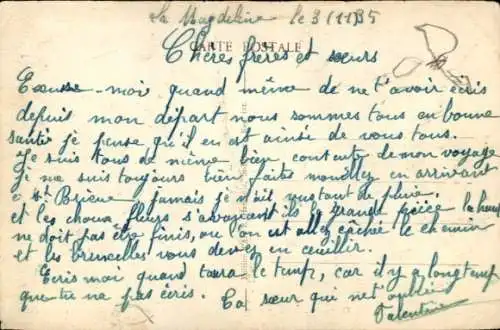 La Magdeleine le 3/11/35
CARTE POSTALE
Chères frères et sœurs
Excuse-moi quand même de ne t'avoir écris
depuis mon départ nous sommes tous en bonne
santé je pense qu'il en est ainsie de vous tous.
Je suis tous de même bien contente de mon voyage
je me suis toujours bien faite mouillez en arrivent
a St Brieuc jamais je vait autant de pluie.
et les choux fleurs s'avançaient ils le grande pièce la haut
ne doit pas être finis, ou l'on est allez caché le chemin
et les bruxcelles vous devez en ceuillir.
Ecris moi quand taura le temp, car il y a longtemp
que tu ne pas écris. Ta sœur qui ne t'oublie
Valentine